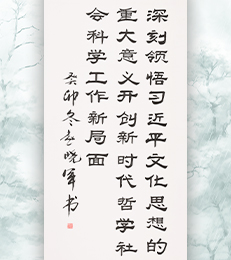 深刻领悟习近平文化思想的
重大意义开创新时代哲学社
会科学工作新局面
癸卯冬赵晓军书